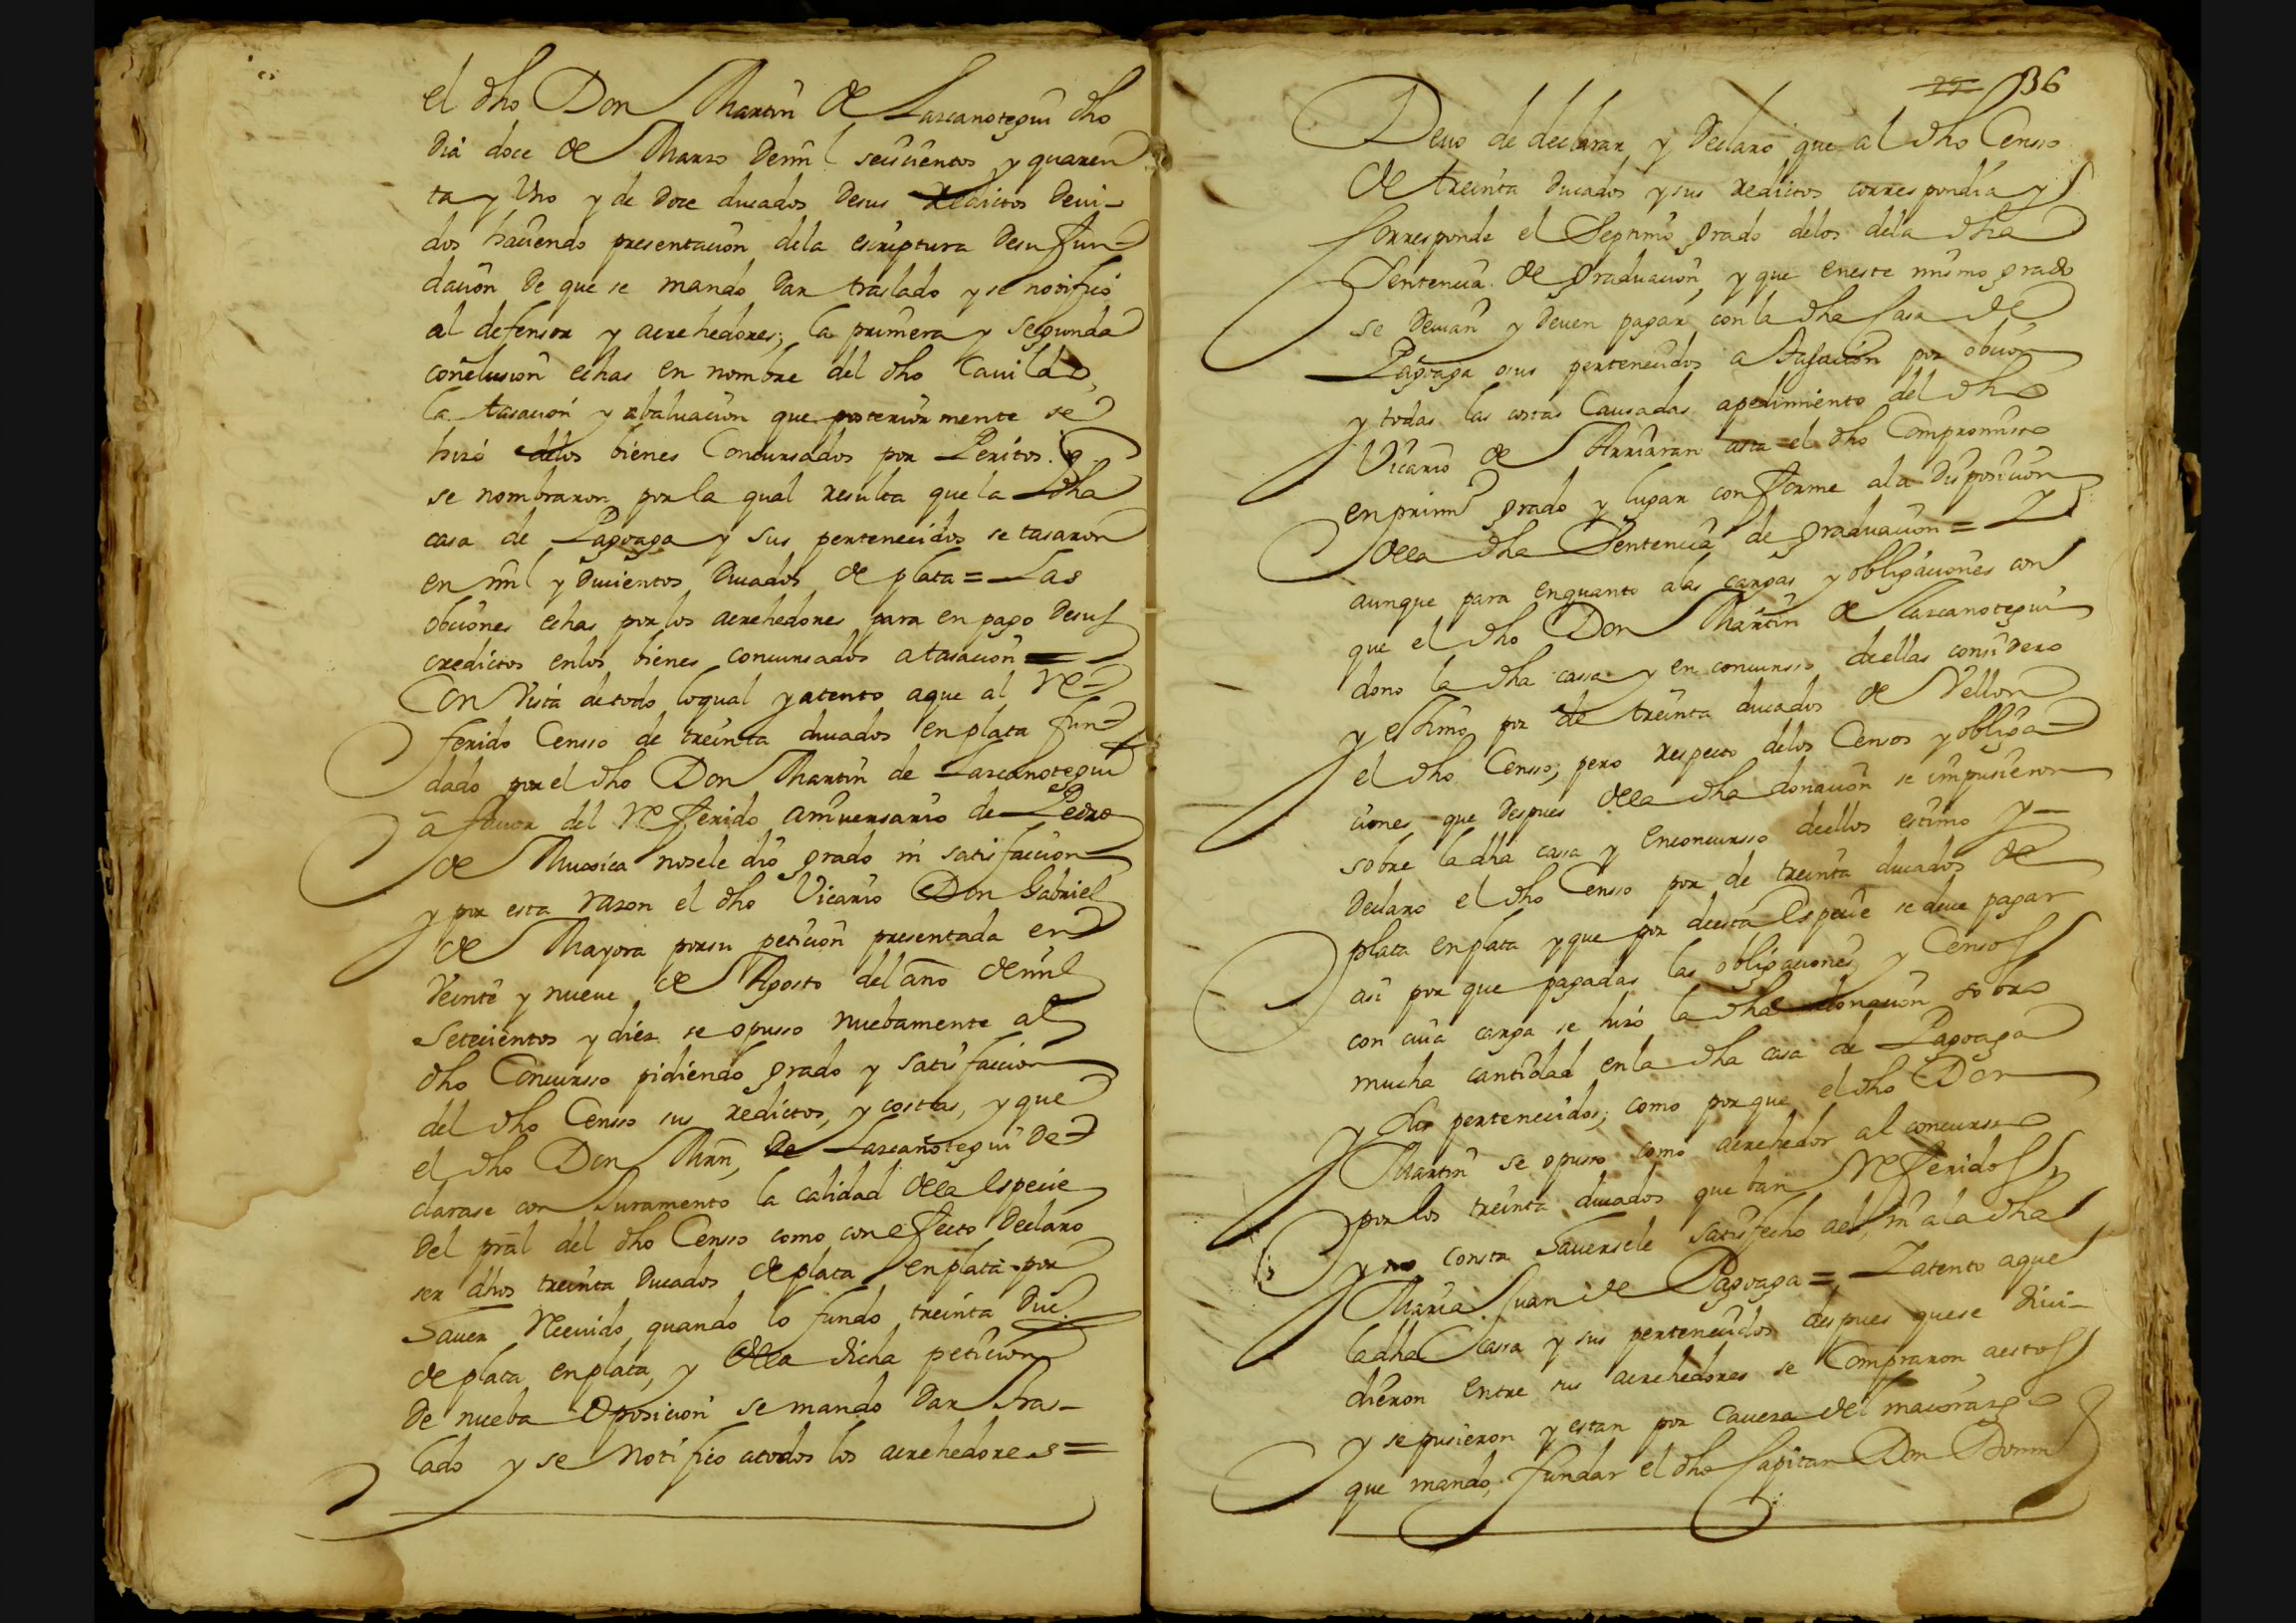 el dho Don Martin de Lascanotegui dho
dia doce de Marzo demil seiscientos y quaren
ta y Uno y de doce ducados desus redictos devi-
dos haciendo presentacion dela escriptura desu fun-
dacion de que se mando dar traslado y se notifico
al defensor y acrehedores; la primera y segunda
conclusion echas en nombre del dho Cavildo,
la tasacion y abaluacion que posteriormente se
hizo delos bienes Concursados por Peritos. q.
se nombraron por la qual resulta que la dha
casa de Pagoaga y sus pertenecidos se tasaron
en mil y ducientos ducados de plata = Las
obciones echas por los acrehedores para en pago desus
credictos enlos bienes concursados a tasacion =
Con Vista de todo loqual y atento aque al re-
ferido Censso de treinta ducados en plata fun-
dado por el dho Don Martin de Lascanotegui
a favor del referido aniversario de Pedro
de Muxica nosele dio grado ni satisfaccion
y por esta rason el dho Vicario Don Gabriel
de Mayora porsu peticion presentada en
Veinte y nueve de Agosto del año demil
Setecientos y diez se opusso nuebamente al
dho Concursso pidiendo grado y satisfaccion
del dho Censso sus redictos, y costas, y que
el dho Don Mrn, de Lascanotegui de-
clarase con Juramento la calidad dela especie
del pral del dho Censso como con efecto declaro
ser dhos treinta Ducados de plata en plata por
haver recivido quando lo fundo treinta Duc.
de plata en plata, y dela dicha peticion
de nueba oposicion se mando dar tras-
lado y se notifico atodos los acrehedores =
29 136
Devo de declarar y declaro que al dho Censso
de treinta ducados y sus redictos correspondia y
Corresponde el Septimo grado delos dela dha
Sentencia de graduacion, y que eneste mismo grado
se devian y deven pagar con la dha Casa de
Pagoaga osus pertenecidos a tasacion por obcion
y todas las costas Causadas apedimiento del dho
Vicario de Arriaran asta el dho Compromisso
en primr grado y lugar conforme ala disposicion
dela dha Sentencia de graduacion = Y
aunque para enquanto alas cargas y obligaciones con
que el dho Don Martin de Lascanotegui
dono la dha cassa y en concursso deellas considero
y estimo por de treinta ducados de Vellon
el dho Censso; pero respecto delos Censos y obliga-
ciones que despues dela dha donacion se impusieron
sobre ladha casa y enconcursso deellos estimo y
declaro el dho Censso por de treinta ducados de
plata en plata y que por deesta Especie se deve pagar
asi por que pagadas las obligaciones y Censos
con cuia carga se hizo la dha donacion sobro
mucha cantidad enla dha casa de Pagoaga
y sus pertenecidos; como porque el dho Don
Martin se opusso como acrehedor al concursso
por los treinta ducados que tan referidos
y no consta haversele satisfecho ael, ni ala dha
Maria Juan de Pagoaga = Yatento aque
ladha Cassa y sus pertenecidos despues quese divi-
dieron entre sus acrehedores se Compraron aestos
y sepusieron y estan por Cavera del maiorazgo
que mando fundar el dho Capitan Don Domin